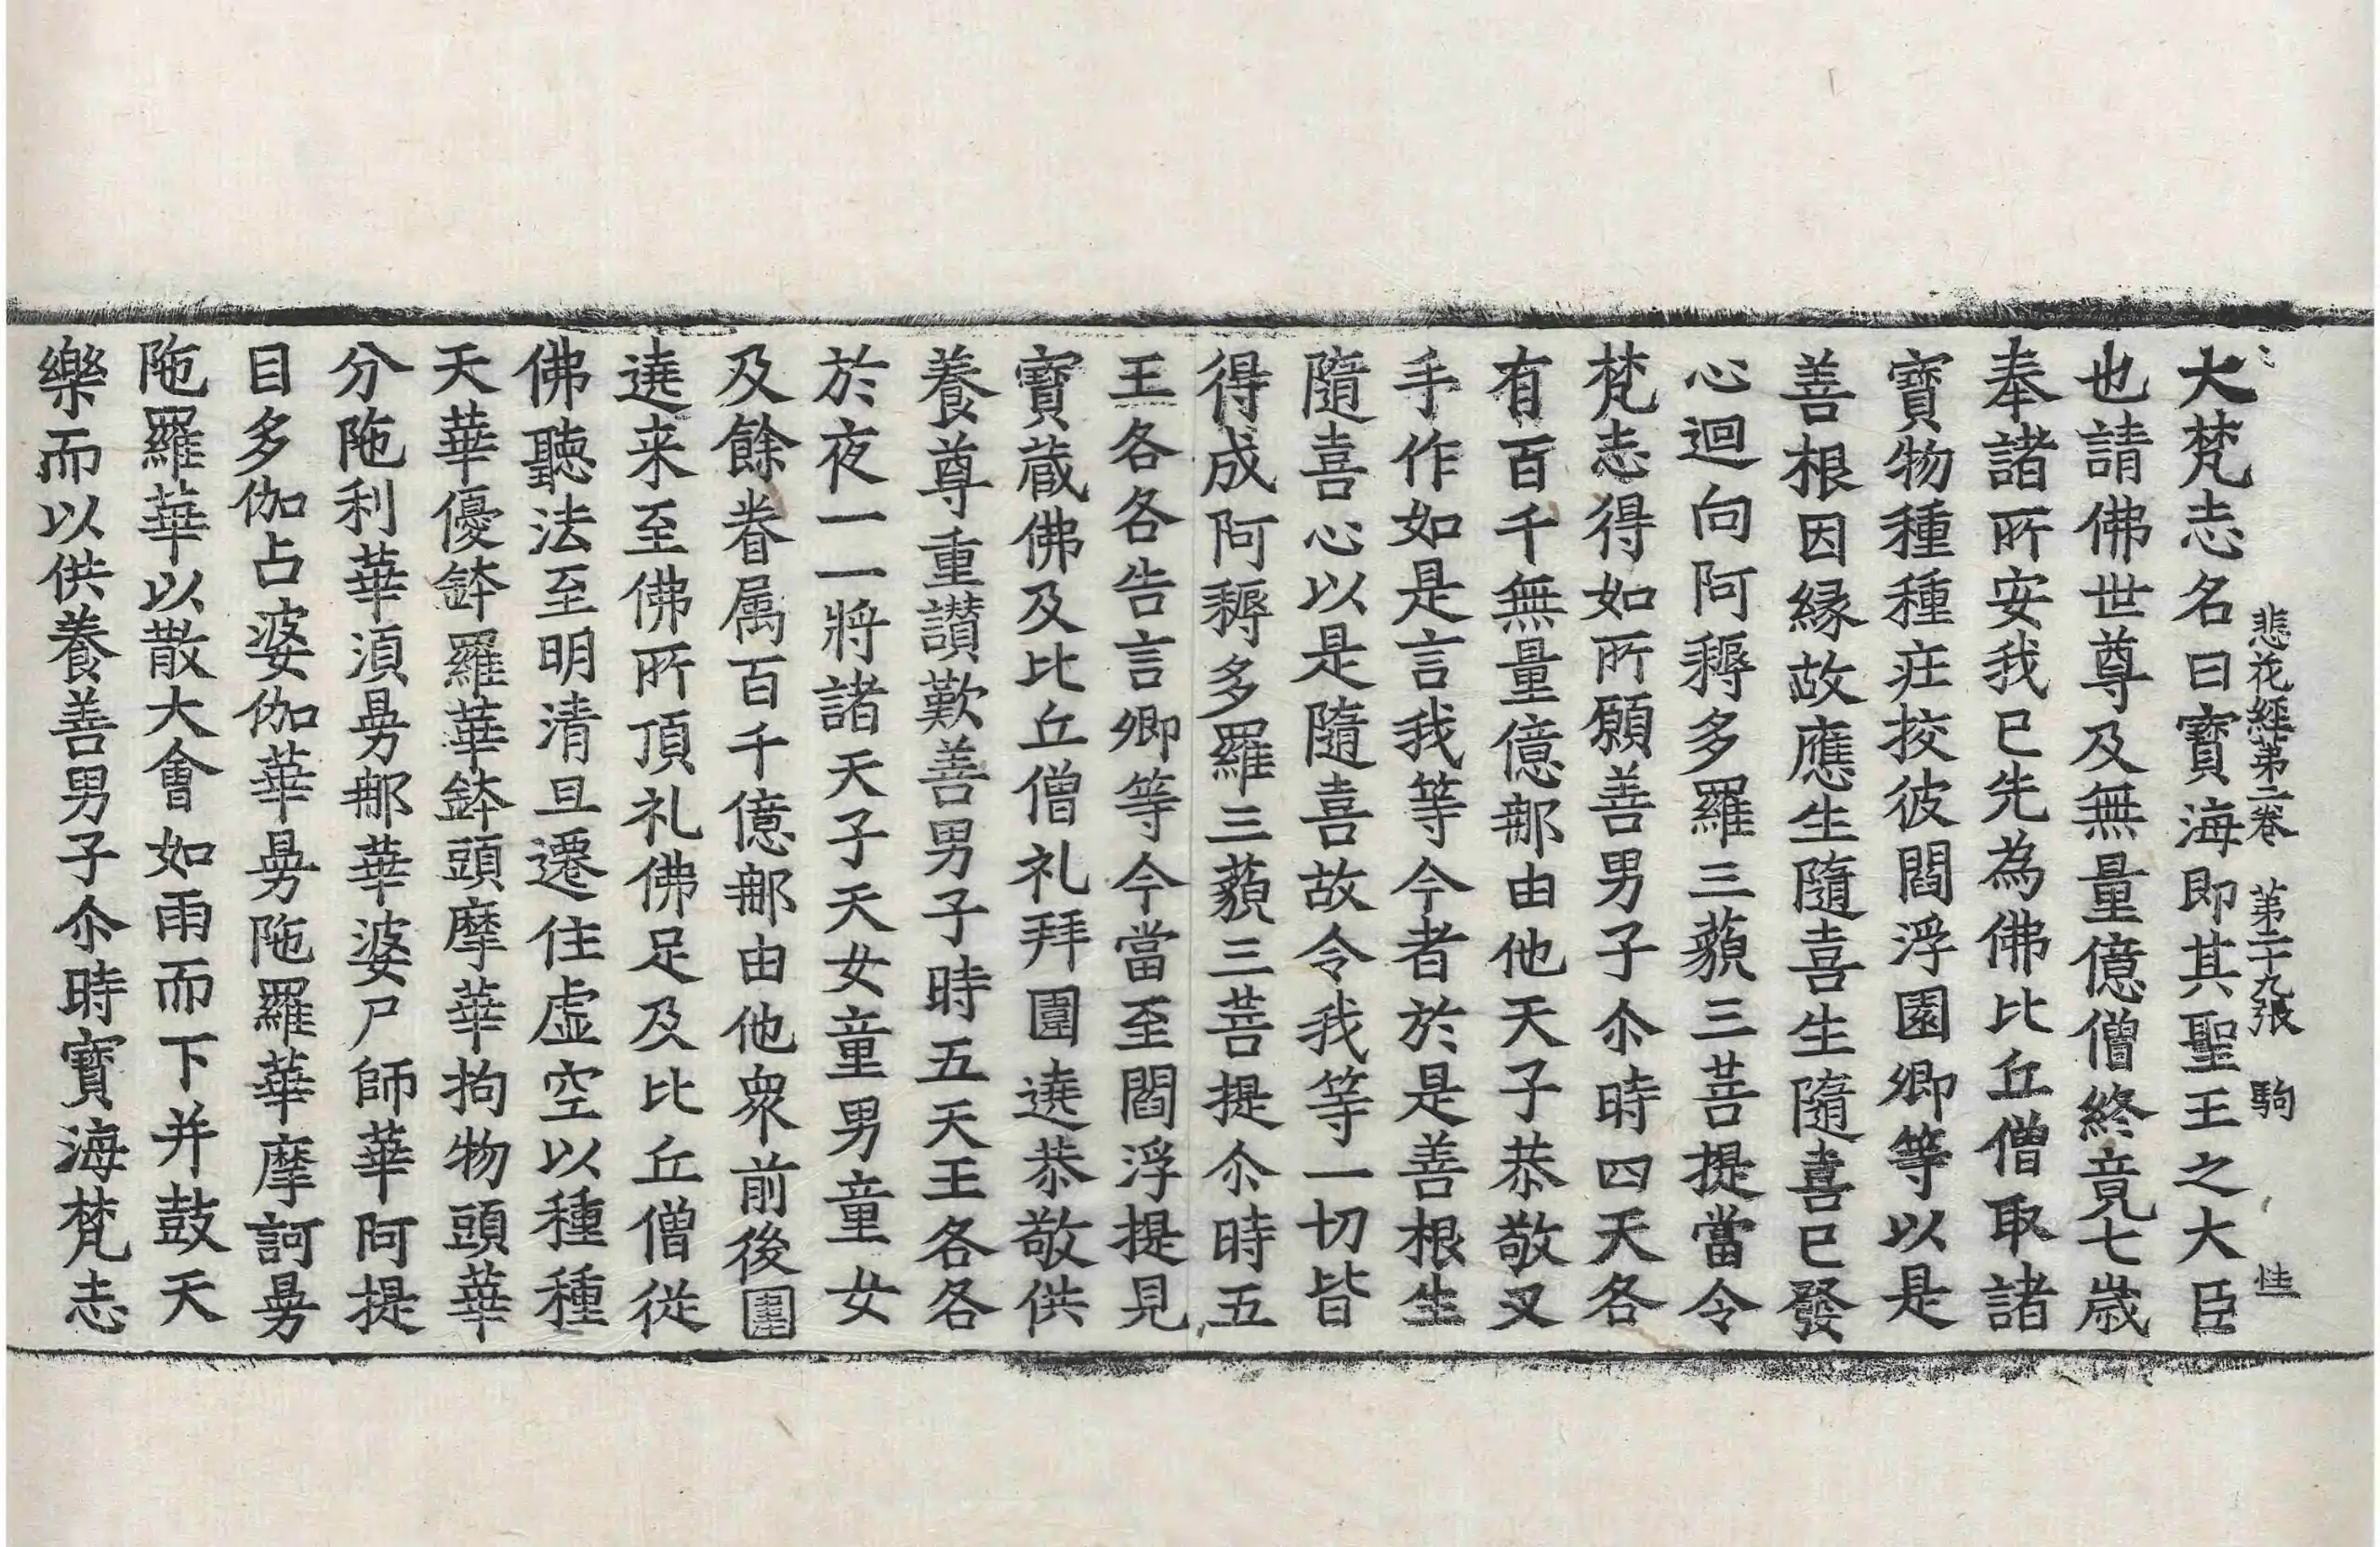 悲花經第二卷　第二十九張　駒
大梵志名曰寶海即其聖王之大臣
也請佛世尊及無量億僧終竟七歳
奉諸所安我已先為佛比丘僧取諸
寶物種種莊挍彼閻浮園卿等以是
善根因縁故應生隨喜生隨喜已發
心迴向阿耨多羅三藐三菩提當令
梵志得如所願善男子尒時四天各
有百千無量億那由他天子恭敬叉
手作如是言我等今者於是善根生
隨喜心以是隨喜故令我等一切皆
得成阿耨多羅三藐三菩提尒時五
王各各告言卿等今當至閻浮提見
寶蔵佛及比丘僧礼拜圍遶恭敬供
養尊重讃歎善男子時五天王各各
於夜一一將諸天子天女童男童女
及餘眷属百千億那由他衆前後圍
遶来至佛所頂礼佛足及比丘僧從
佛聽法至明清旦遷住虚空以種種
天華優鉢羅華鉢頭摩華拘物頭華
分陁利華湏曼那華婆尸師華阿提
目多伽占婆伽華曼陁羅華摩訶曼
陁羅華以散大會如雨而下并鼓天
樂而以供養善男子尒時寶海梵志